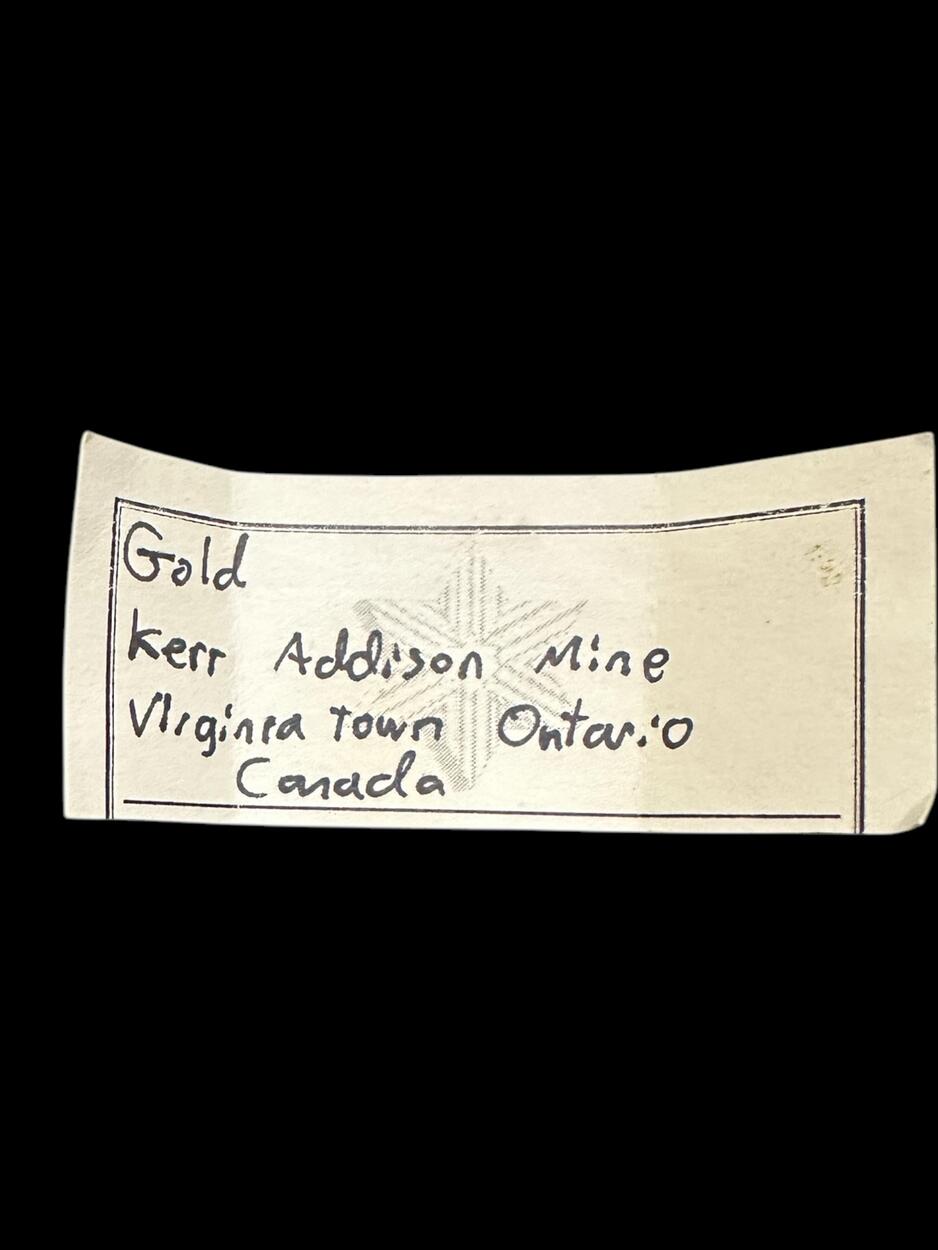 Gold
Kerr Addison Mine
Virginia Town Ontario
Canada